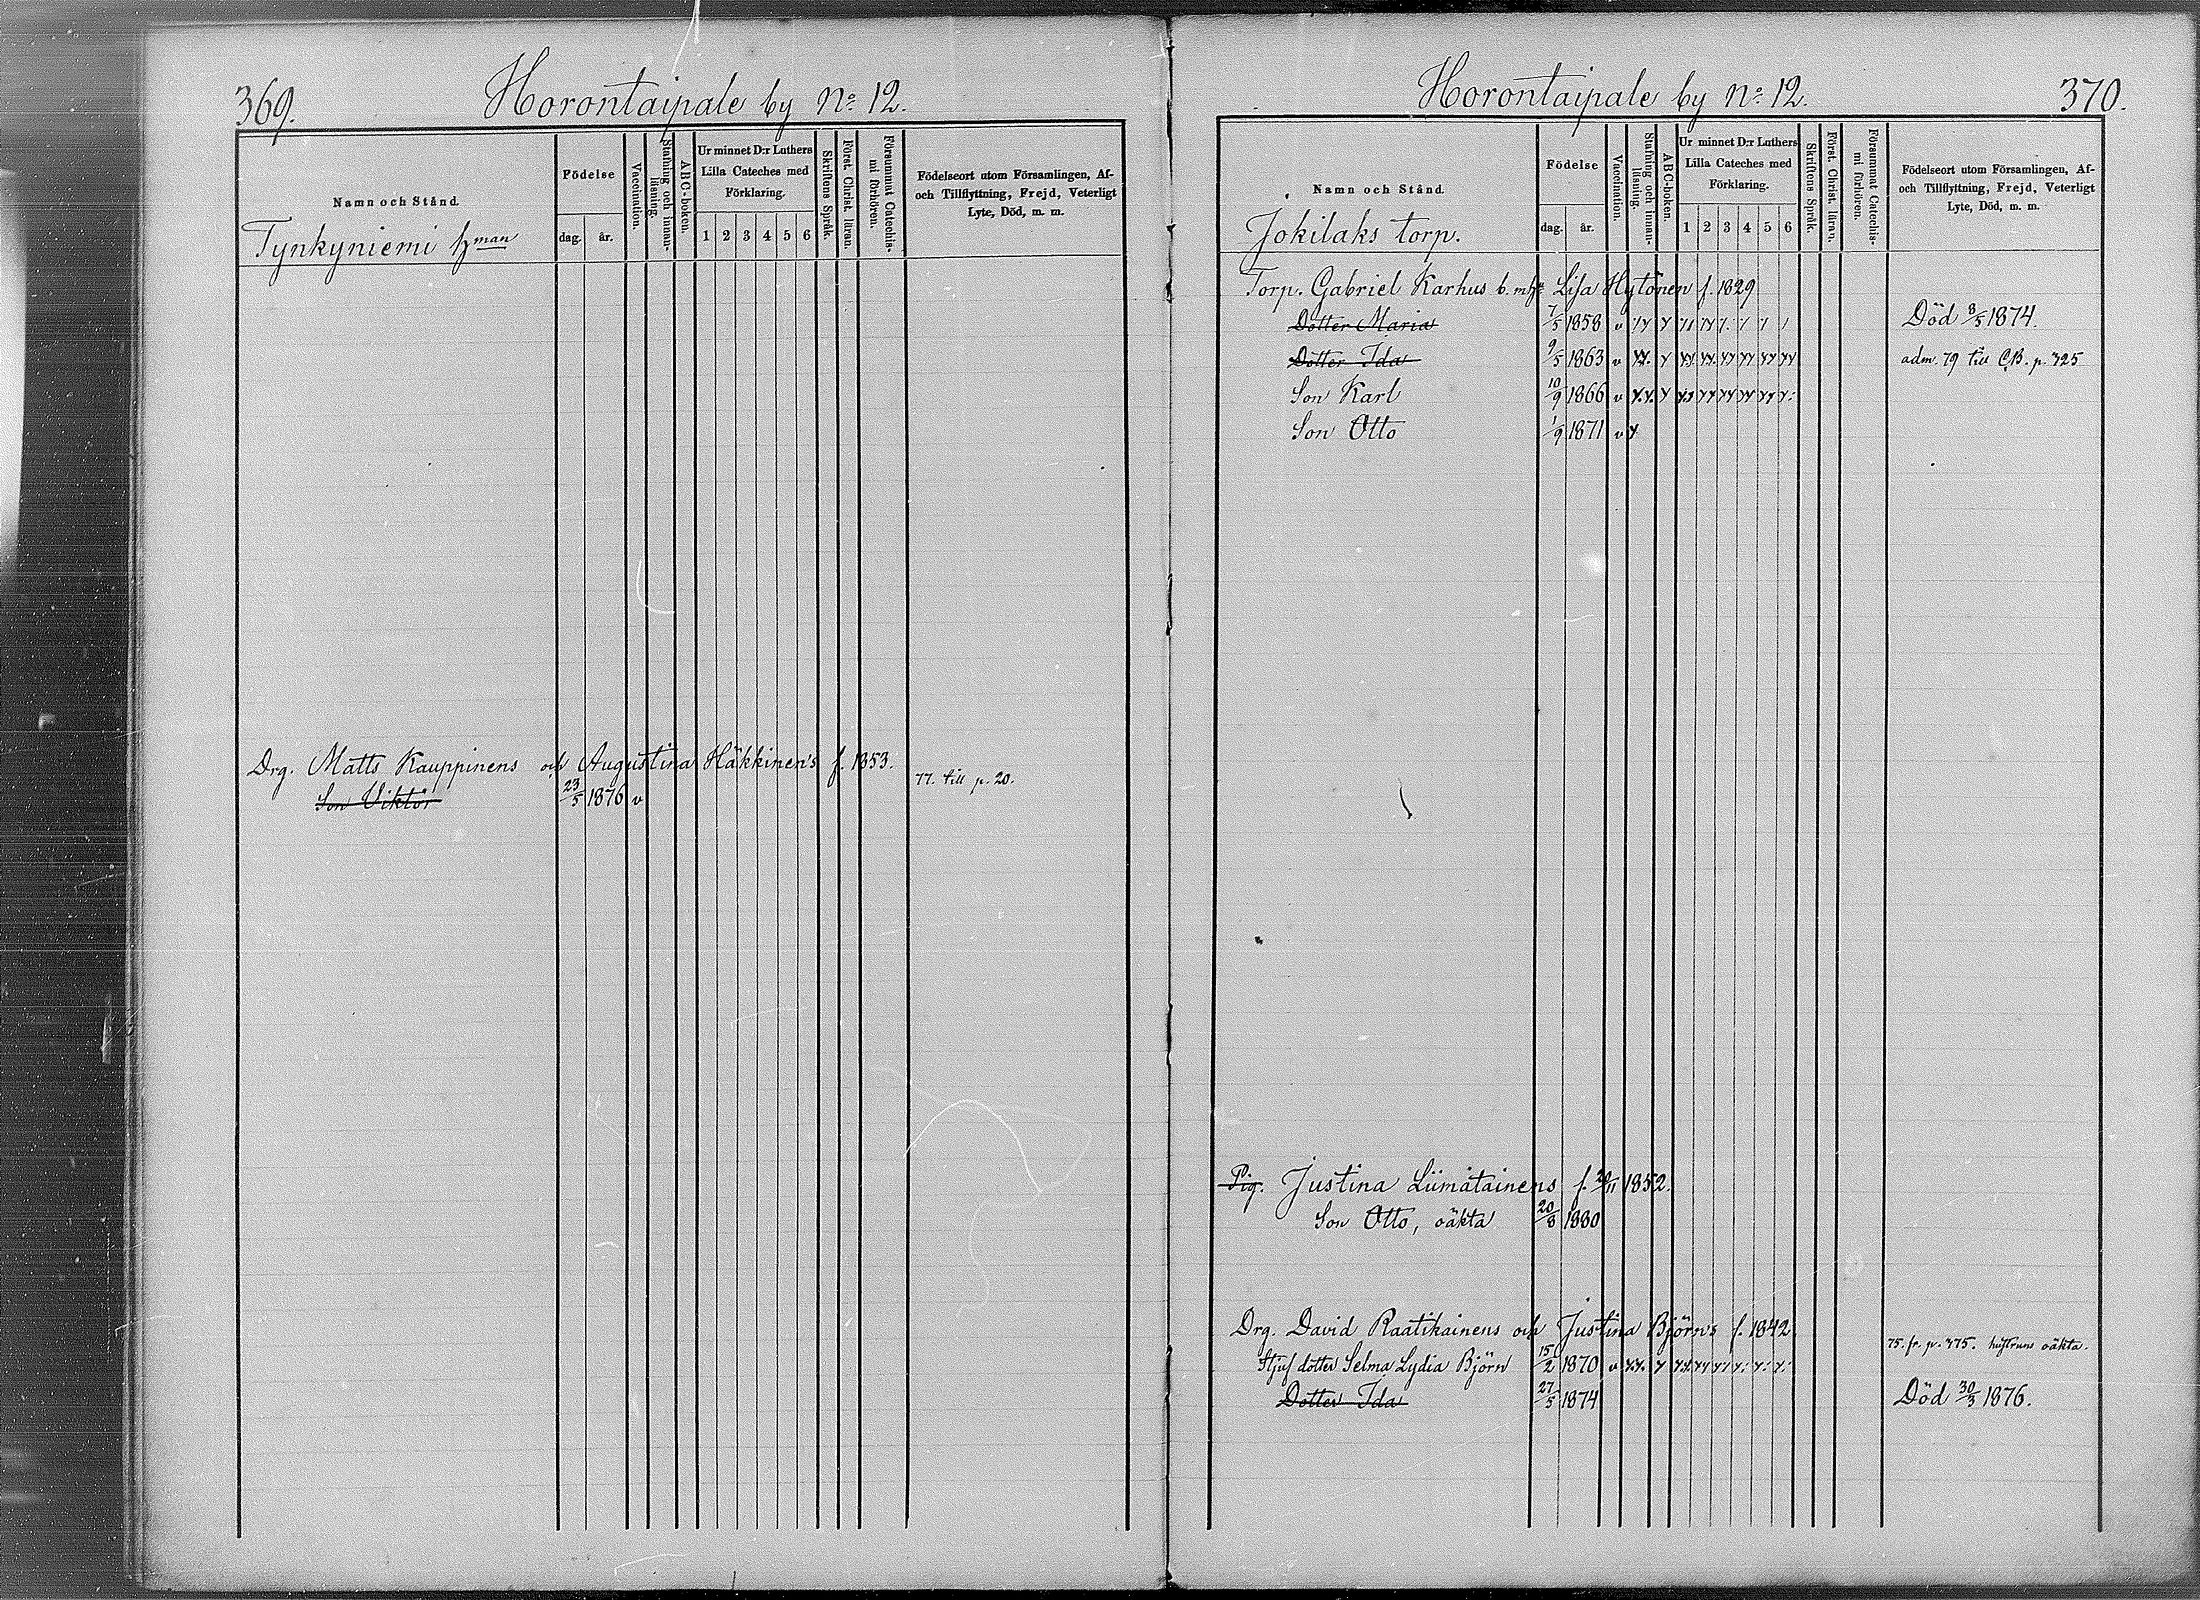 369.
Horontaipale by No 12.
Namn och Stånd.
Födelse
dag. år.
Vaccination.
Stafning och innan-läsning.
ABC-boken.
Ur minnet D:r Luthers Lilla Cateches med Förklaring.
1 2 3 4 5 6
Skriftens Språk.
Först. Christ. läran.
Försummat Catechis-mi förhören.
Födelseort utom Församlingen, Af-
och Tillflyttning, Frejd, Veterligt
Lyte, Död, m. m.
Tynkyniemi hman
Drg. Matts Kauppinens och Augustina Häkkinens f. 1853.
Son Viktor 23/5 1876 v 77. till p. 20.
Horontaipale by No 12.
370.
Namn och Stånd.
Födelse
dag. år.
Vaccination.
Stafning och innan-läsning.
ABC-boken.
Ur minnet D:r Luthers Lilla Cateches med Förklaring.
1 2 3 4 5 6
Skriftens Språk.
Först. Christ. läran.
Försummat Catechis-mi förhören.
Födelseort utom Församlingen, Af-
och Tillflyttning, Frejd, Veterligt
Lyte, Död, m. m.
Jokilaks torp.
Torp. Gabriel Karhus b. m. Lisa Hytönen f. 1829
Dotter Maria 7/5 1858 v Död 8/5 1874.
Dotter Ida 9/5 1863 v adm. 79 till C.B. p. 325
Son Karl 10/9 1866 v
Son Otto 1/9 1871 v
Pig. Justina Liimatainens f. 20/11 1852.
Son Otto, oäkta 20/8 1880
Drg. David Raatikainens och Justina Björns f. 1842
Stjuf dotter Selma Lydia Björn 15/2 1870 v 75. fr. p. 375. hustruns oäkta.
Dotter Ida 27/5 1874 Död 30/3 1876.